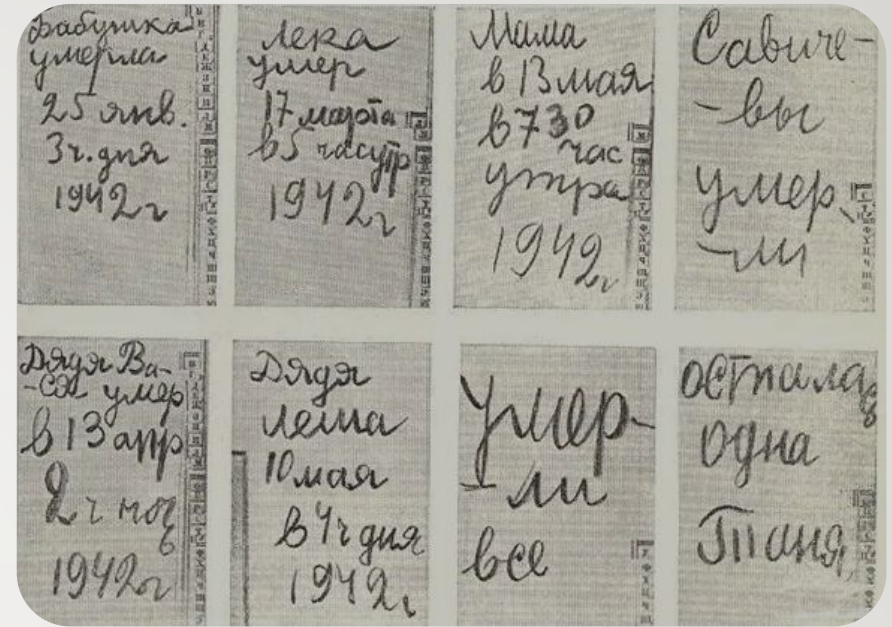 Бабушка
умерла
25 янв.
3ч. дня
1942 г
Лека
умер
17 марта
в 5 час утр
1942 г
Мама
в 13 мая
в 7 30
час
утра
1942 г
Савиче-
-вы
умер
-ли
Дядя Ва-
-ся умер
в 13 апр
2 ч ноч
ь
1942 г
Дядя
Леша
10 мая
в 4 ч дня
1942 г
Умер-
-ли
все
Осталась
одна
Таня